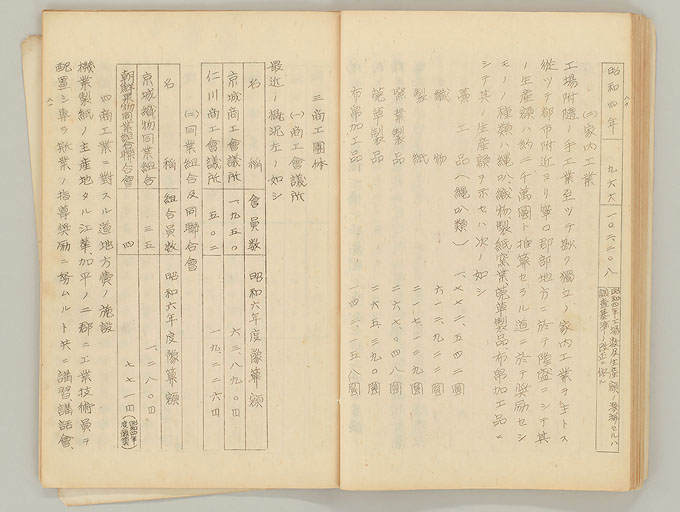 昭和四年 九六六 一〇二二〇八 昭和四年工場数及生産額ノ激減セルハ
調査基準ノ改正ニ依ル
(二)家内工業
工場附随ノ手工業至ツテ尠ク獨立ノ家内工業ヲ主トス
從ツテ都市附近ヨリ寧ロ郡部地方ニ於テ隆盛ニシテ其
ノ生産額ハ約二千萬圓ト推算セラル道ニ於テ奨励セシ
モノノ種類ハ縄叺織物製紙窯業莞草製品布帛加工品ニ
シテ其ノ生産額ヲ示セハ次ノ如シ
藁工品(縄叺類) 一、七七二、五四二圓
織物 六一二、二九〇圓
製紙 二一七、一二〇圓
窯業製品 二六七、〇四八圓
莞草製品 二六五、三九〇圓
布帛加工品 一四二、一五八圓
三 商工團体
(一)商工會議所
最近ノ概況左ノ如シ
名稱 會員数 昭和六年度豫算額
京城商工會議所 一、九五〇 六三、八九〇円
仁川商工會議所 五〇二 一九、二二六円
(二)同業組合及同聯合會
名稱 組合員数 昭和六年度豫算額
京城織物同業組合 三五 一、二八〇円
朝鮮果物同業組合聯合會 四 七七一円(昭和四年度豫算)
四 商工業ニ對スル道地方費ノ施設
機業製紙ノ生産地タル江華、加平ノ二郡ニ工業技術員ヲ
配置シ專ラ斯業ノ指導奨励ニ努ムルト共ニ講習講話會、